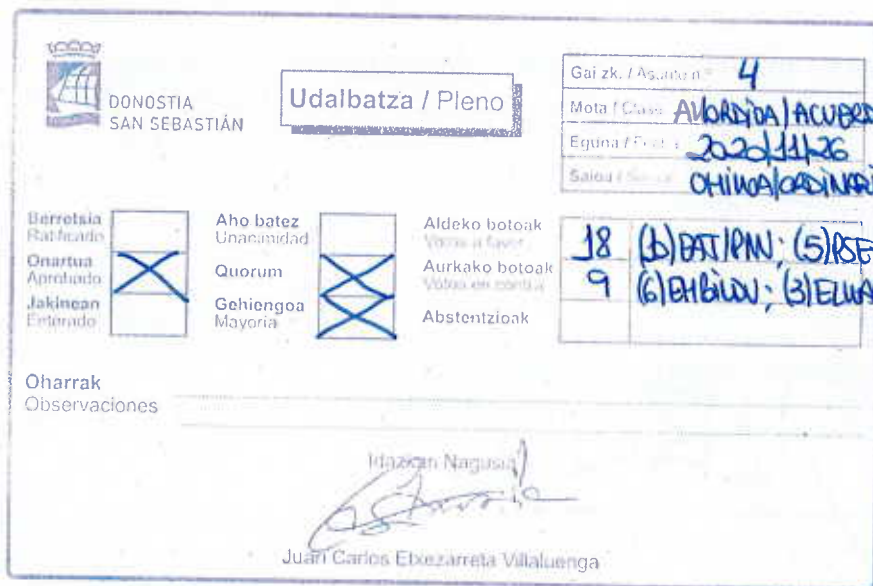 DONOSTIA
SAN SEBASTIÁN
Udalbatza / Pleno
Gai zk. / Asunto n.º 4
Mota / Clase
Eguna / Fecha 2020/11/26
Saioa /
Berretsia
Ratificado
Onartua
Aprobado
Jakinean
Enterado
Aho batez
Unanimidad
Quorum
Gehiengoa
Mayoría
Aldeko botoak
Votos a favor
Aurkako botoak
Votos en contra
Abstentzioak
18 EAJ/PNV; (5) PSE
9 (6) EHBILDU; (3)
Oharrak
Observaciones
Idazkari Nagusia
Juan Carlos Etxezarreta Villaluenga